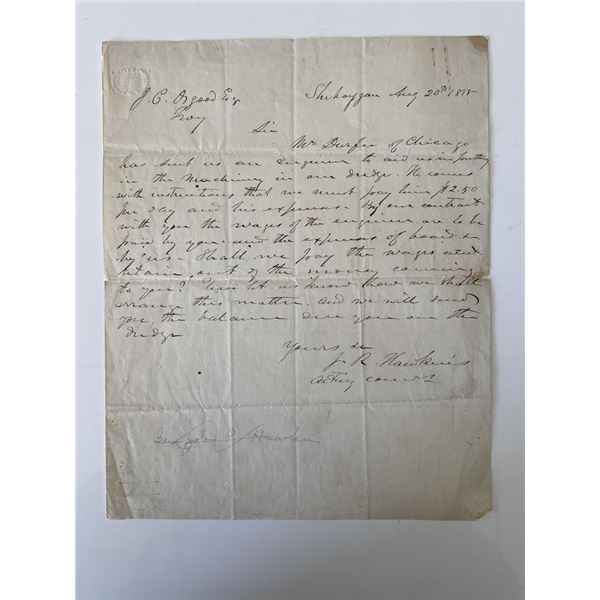 J. C. Osgood Esq
Sheboygan Aug 20th 1855
Troy
Sir
Mr Durfee of Chicago
has sent us an Engineer to aid us in putting
in the Machinery in our dredge. He comes
with instructions that we must pay him $2.50
per day and his expenses. By our contract
with you the wages of the engineer are to be
paid by you and the expenses of board &c
by us. Shall we pay the wages and
retain out of the money coming
to you? Please let us know how we shall
arrange this matter. and we will send
you the balance due you on the
dredge
Yours &c
J. R. Hawkins
Acting